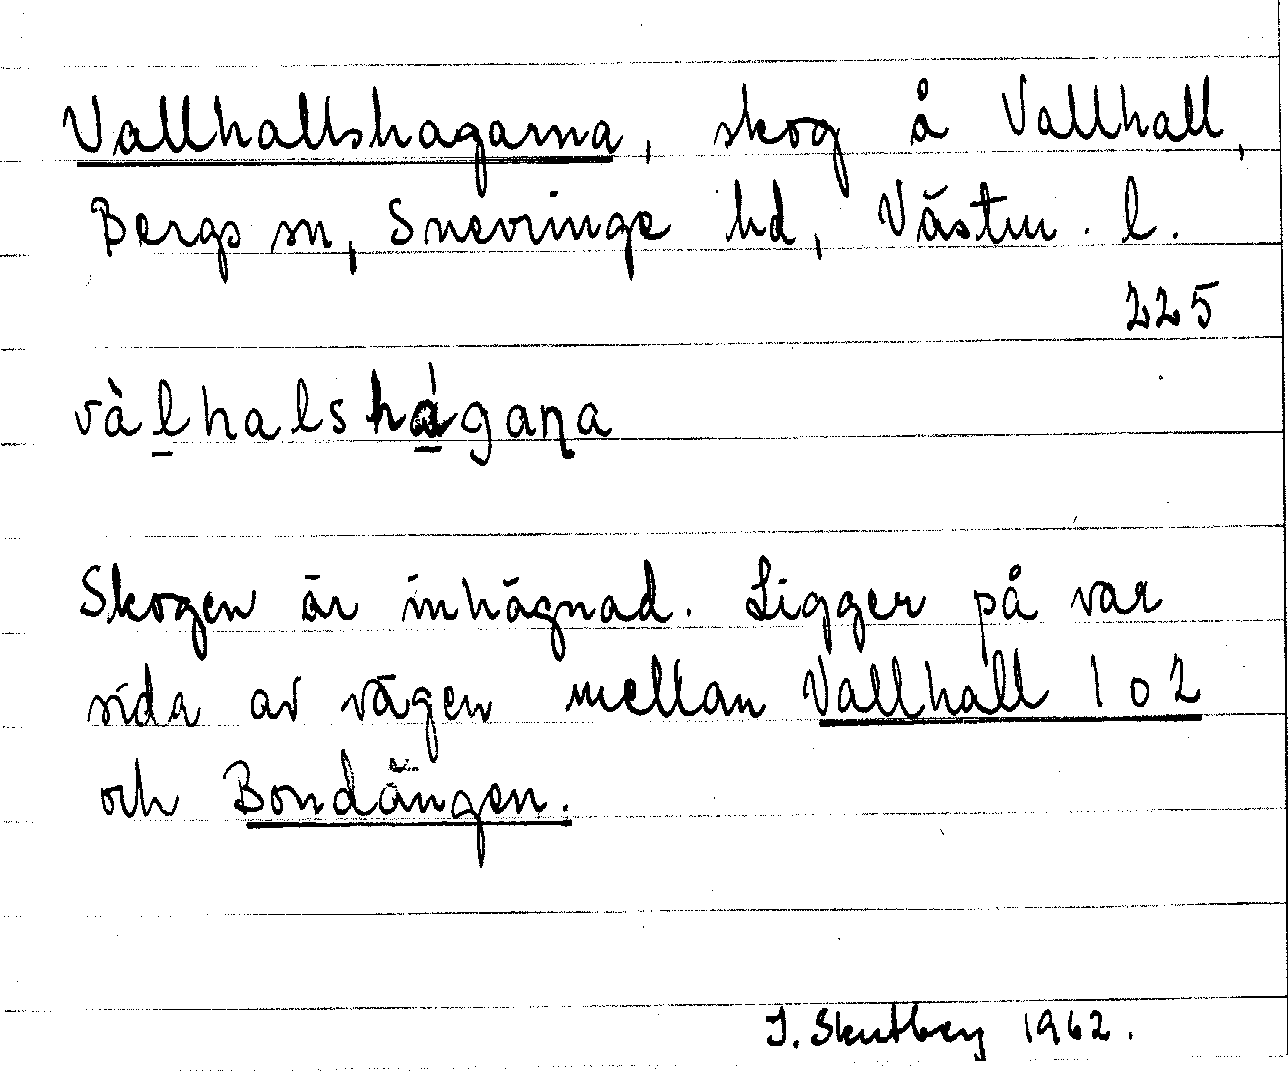 Vallhallshagarna, skog å Vallhall,
Bergs sn, Snevringe hd, Västm. l.
225
vàl̲halshá̲gaṇa
Skogen är inhägnad. Ligger på var
sida av vägen mellan Vallhall 1 o 2
och Bondängen.
J. Skutberg 1962.